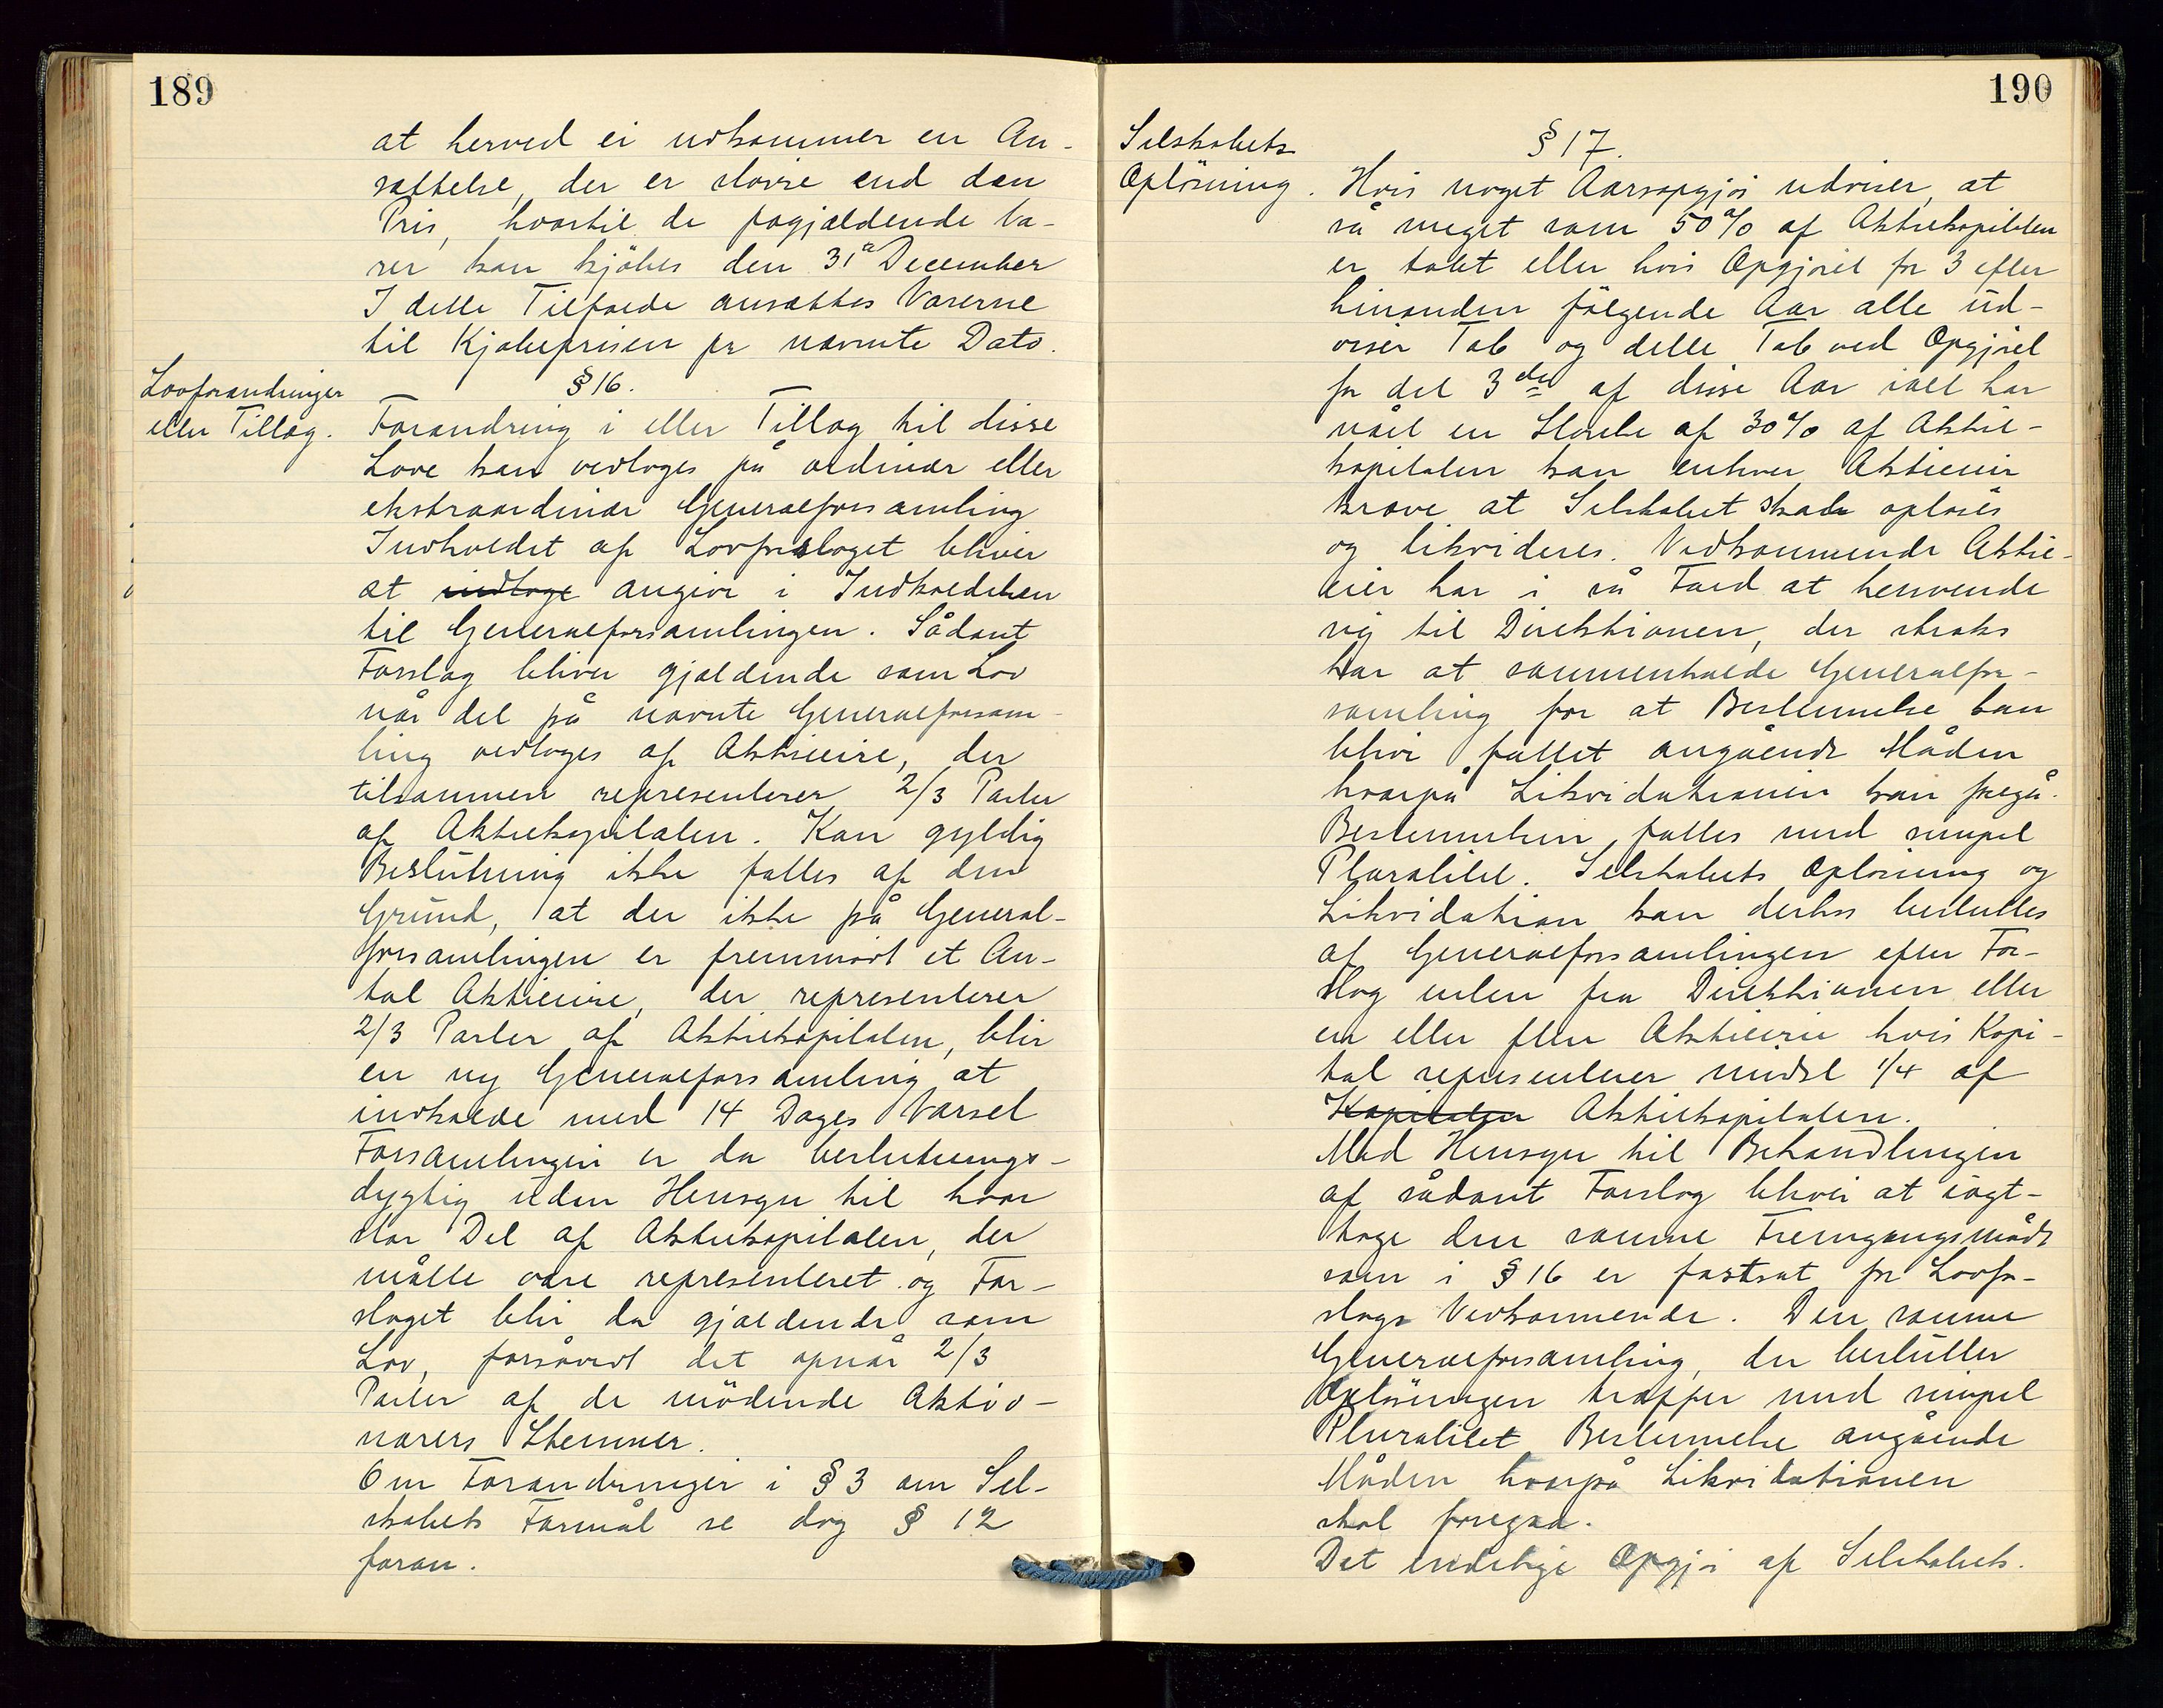 189
at herved ei udkommer en An-
sættelse, der er større end den
Pris, hvortil de pågjældende Va-
rer kan kjøbes den 31te December
I dette Tilfælde ansættes Varerne
til Kjøbeprisen pr nævnte Dato.
Lovforandringer
eller Tillæg.
§ 16.
Forandring i eller Tillæg til disse
Love kan vedtages på ordinær eller
ekstraordinær Generalforsamling
Indholdet af Lovforslaget bliver
at indtage angive i Indkaldelsen
til Generalforsamlingen. Sådant
Forslag bliver gjældende som Lov
når det på nævnte Generalforsam-
ling vedtages af Aktieeire, der
tilsammen representerer 2/3 Parter
af Aktiekapitalen. Kan gyldig
Beslutning ikke fattes af den
Grund, at der ikke på General-
forsamlingen er fremmødt et An-
tal Aktieeire, der representerer
2/3 Parter af Aktiekapitalen, blir
en ny Generalforsamling at
indkalde med 14 Dages Varsel
Forsamlingen er da beslutnings-
dygtig uden Hensyn til hvor
stor Del af Aktiekapitalen, der
måtte være representeret og For-
slaget blir da gjældende som
Lov, forsåvidt det opnår 2/3
Parter af de mødende Aktio-
nærers Stemmer.
Om Forandringer i § 3 om Sel-
skabets Formål se dog § 12
foran.
190
Selskabets
Opløsning.
§ 17.
Hvis noget Aarsopgjør udviser, at
så meget som 50% af Aktiekapitalen
er tabt eller hvis Opgjøret for 3 efter
hinanden følgende Aar alle ud-
viser Tab og dette Tab ved Opgjøret
for det 3die af disse Aar ialt har
nået en Størrelse af 30% af Aktie-
kapitalen kan enhver Aktieeier
kræve at Selskabet skal opløses
og likvideres. Vedkommende Aktie-
eier har i så Fald at henvende
sig til Direktionen, der straks
har at sammenkalde Generalfor-
samling for at Bestemmelse kan
blive fattet angående Måden
hvorpå Likvidationen kan foregå.
Bestemmelsen fattes med simpel
Pluralitet. Selskabets Opløsning og
Likvidation kan derhos besluttes
af Generalforsamlingen efter For-
slag enten fra Direktionen eller
en eller flere Aktieeire hvis Kapi-
tal representerer mindst 1/4 af
Kapitalen Aktiekapitalen.
Med Hensyn til Behandlingen
af sådant Forslag bliver at iagt-
tage den samme Fremgangsmåde
som i § 16 er fastsat for Lovfor-
slags Vedkommende. Den samme
Generalforsamling, der beslutter
Opløsningen træffer med simpel
Pluralitet Bestemmelse angående
Måden hvorpå Likvidationen
skal foregaa.
Det endelige Opgjør af Selskabets